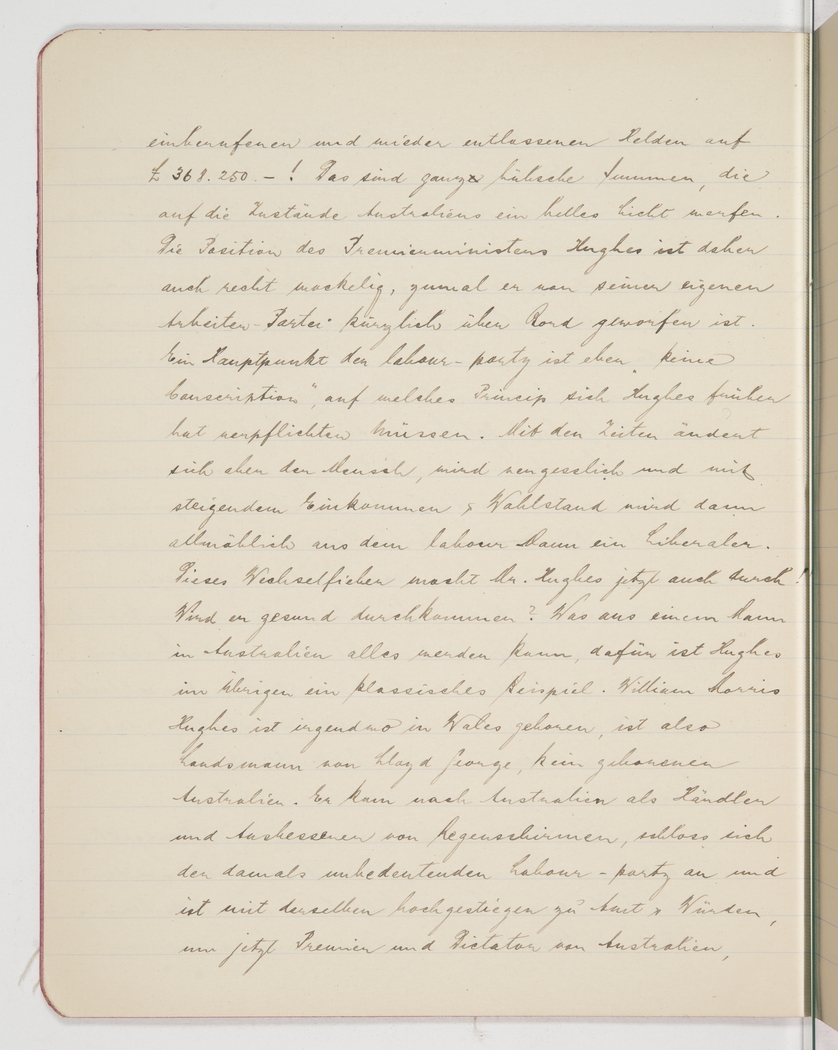 einberufenen und wieder entlassenen Helden auf
£ 368.250.- ! Das sind ganz hübsche Summen, die
auf die Zustände Australiens ein helles Licht werfen.
Die Position des Premierministers Hughes ist daher
auch recht wackelig, zumal er von seiner eigenen
Arbeiter-Partei kürzlich über Bord geworfen ist.
Ein Hauptpunkt der labour-party ist eben „keine
Conscription", auf welches Princip sich Hughes früher
hat verpflichten müssen. Mit den Zeiten ändert
sich aber der Mensch, wird vergesslich und mit
steigendem Einkommen & Wohlstand wird dann
allmählich aus dem labour Mann ein Liberaler.
Dieses Wechselfieber macht Mr. Hughes jetzt auch durch!
Wird er gesund durchkommen? Was aus einem Mann
in Australien alles werden kann, dafür ist Hughes
im Übrigen ein klassisches Beispiel. William Morris
Hughes ist irgendwo in Wales geboren, ist also
Landsmann von Lloyd George, kein geborener
Australier. Er kam nach Australien als Händler
und Ausbesserer von Regenschirmen, schloss sich
der damals unbedeutenden Labour-party an und
ist mit derselben hochgestiegen zu Amt & Würden,
um jetzt Premier und Dictator von Australien,